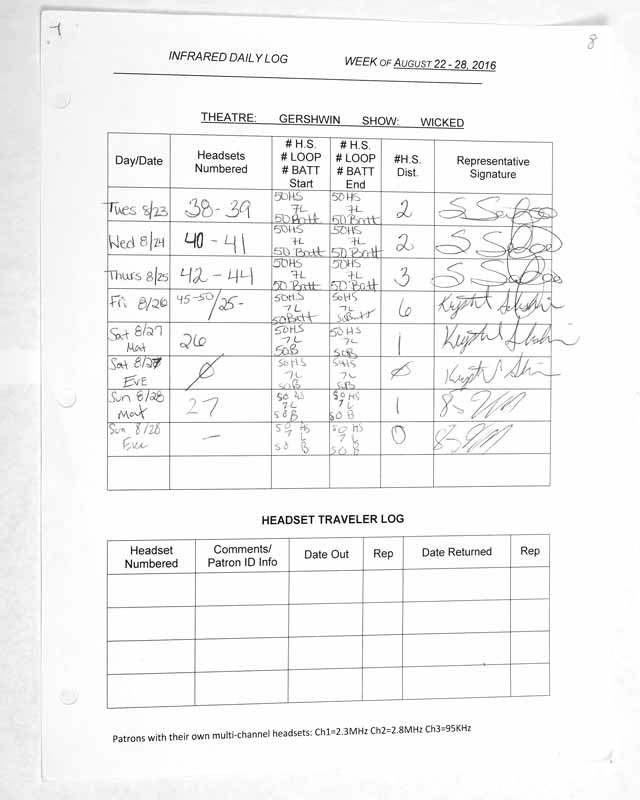 7
8
INFRARED DAILY LOG WEEK OF AUGUST 22 - 28, 2016
THEATRE: GERSHWIN SHOW: WICKED
Day/Date Headsets Numbered # H.S. # LOOP # BATT Start # H.S. # LOOP # BATT End #H.S. Dist. Representative Signature
Tues 8/23 38-39 50HS 7L 50 Batt 50HS 7L 50 Batt 2
Wed 8/24 40-41 50HS 7L 50 Batt 50HS 7L 50 Batt 2
Thurs 8/25 42-44 50HS 7L 50 Batt 50HS 7L 50 Batt 3
Fri 8/26 45-50/25- 50HS 7L 50Batt 50HS 7L 50Batt 6 Krystal
Sat 8/27 Mat 26 50HS 7L 50B 50HS 7L 50B 1 Krystal
Sat 8/27 EVE Ø 50HS 7L 50B 50HS 7L 50B Ø Krystal
Sun 8/28 Mat 27 50 HS 7L 50B 50HS 7L 50B 1
Sun 8/28 Eve — 50 HS 7 L 50 B 50 HS 7L 50 B 0
HEADSET TRAVELER LOG
Headset Numbered Comments/ Patron ID Info Date Out Rep Date Returned Rep
Patrons with their own multi-channel headsets: Ch1=2.3MHz Ch2=2.8MHz Ch3=95KHz